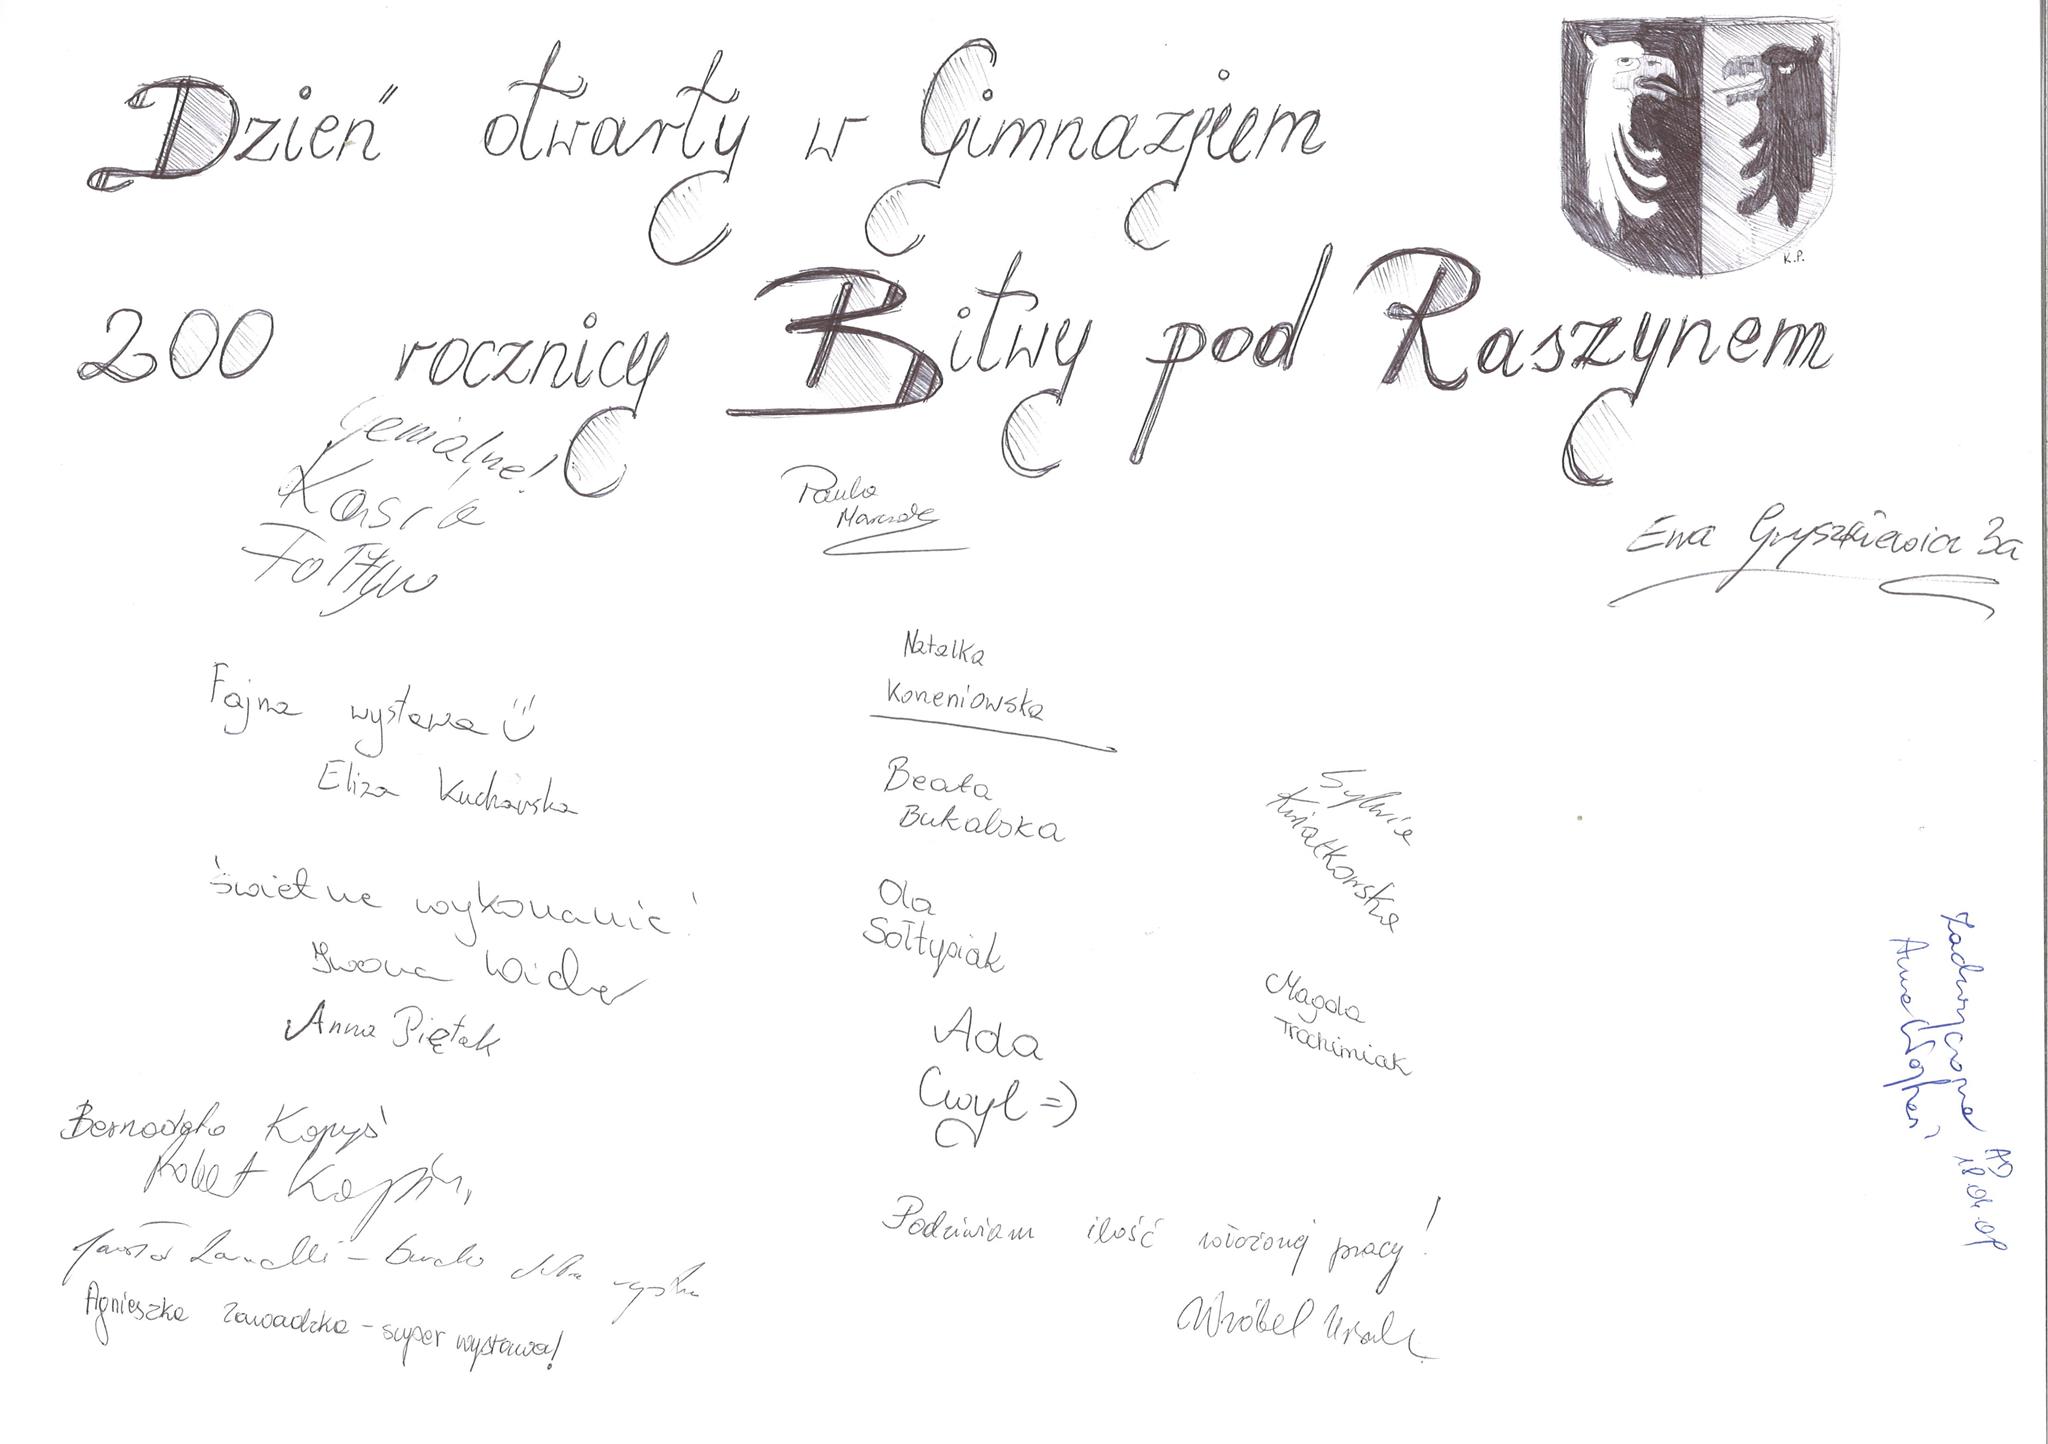 Dzień otwarty w Gimnazjum
K.P.
200 rocznicy Bitwy pod Raszynem
Genialne!
Kasia
Fołtyn
Paula
Ewa Gryszkiewicz 3a
Natalka
Koneniowska
Fajna wystawa
Eliza Kucharska
Beata
Bukalska
Sylwia
Kwiatkowska
świetne wykonanie!
Iwona Wicher
Anna Piętak
Ola
Sołtysiak
Magda
Trochimiak
Ada
Cwyl =)
Bernadeta Kopyś
Robert
Agnieszka Zawadzka - super wystawa!
Podziwiam ilość włożonej pracy!
Wróbel Urszula
Nadzwyczajne
18.04.09
Anna